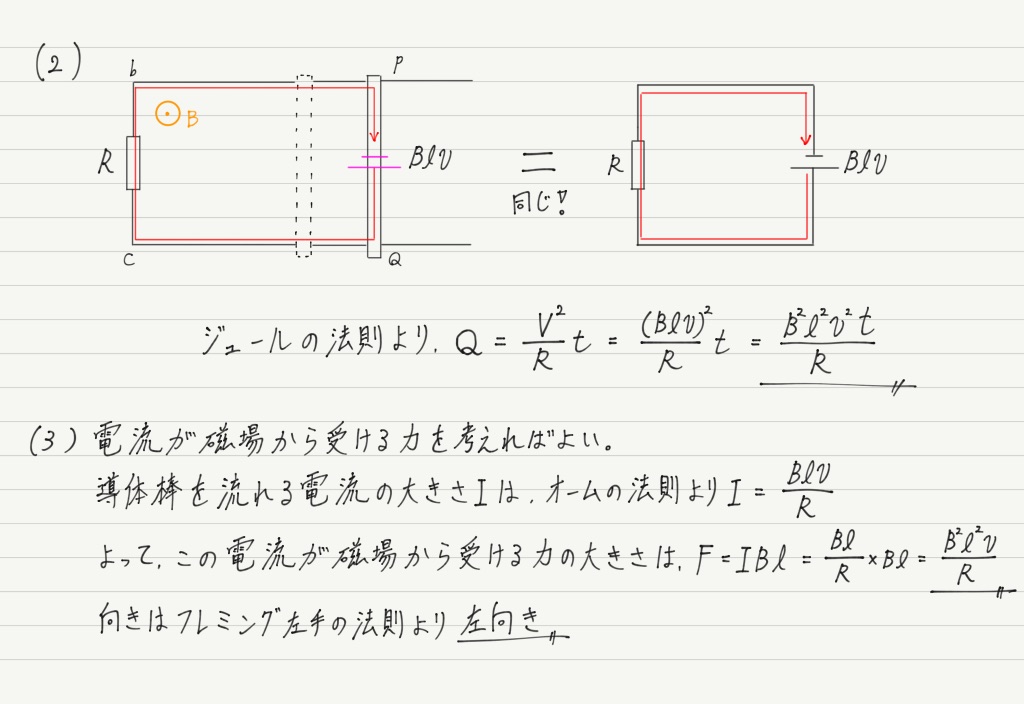 (2)
b
P
B
R
Blv
=
同じ!
R
Blv
C
Q
ジュールの法則より, Q = V²/R t = (Blv)²/R t = B²l²v²t/R
(3) 電流が磁場から受ける力を考えればよい。
導体棒を流れる電流の大きさIは, オームの法則より I = Blv/R
よって, この電流が磁場から受ける力の大きさは, F = IBl = Bl/R × Bl = B²l²v/R
向きはフレミング左手の法則より 左向き